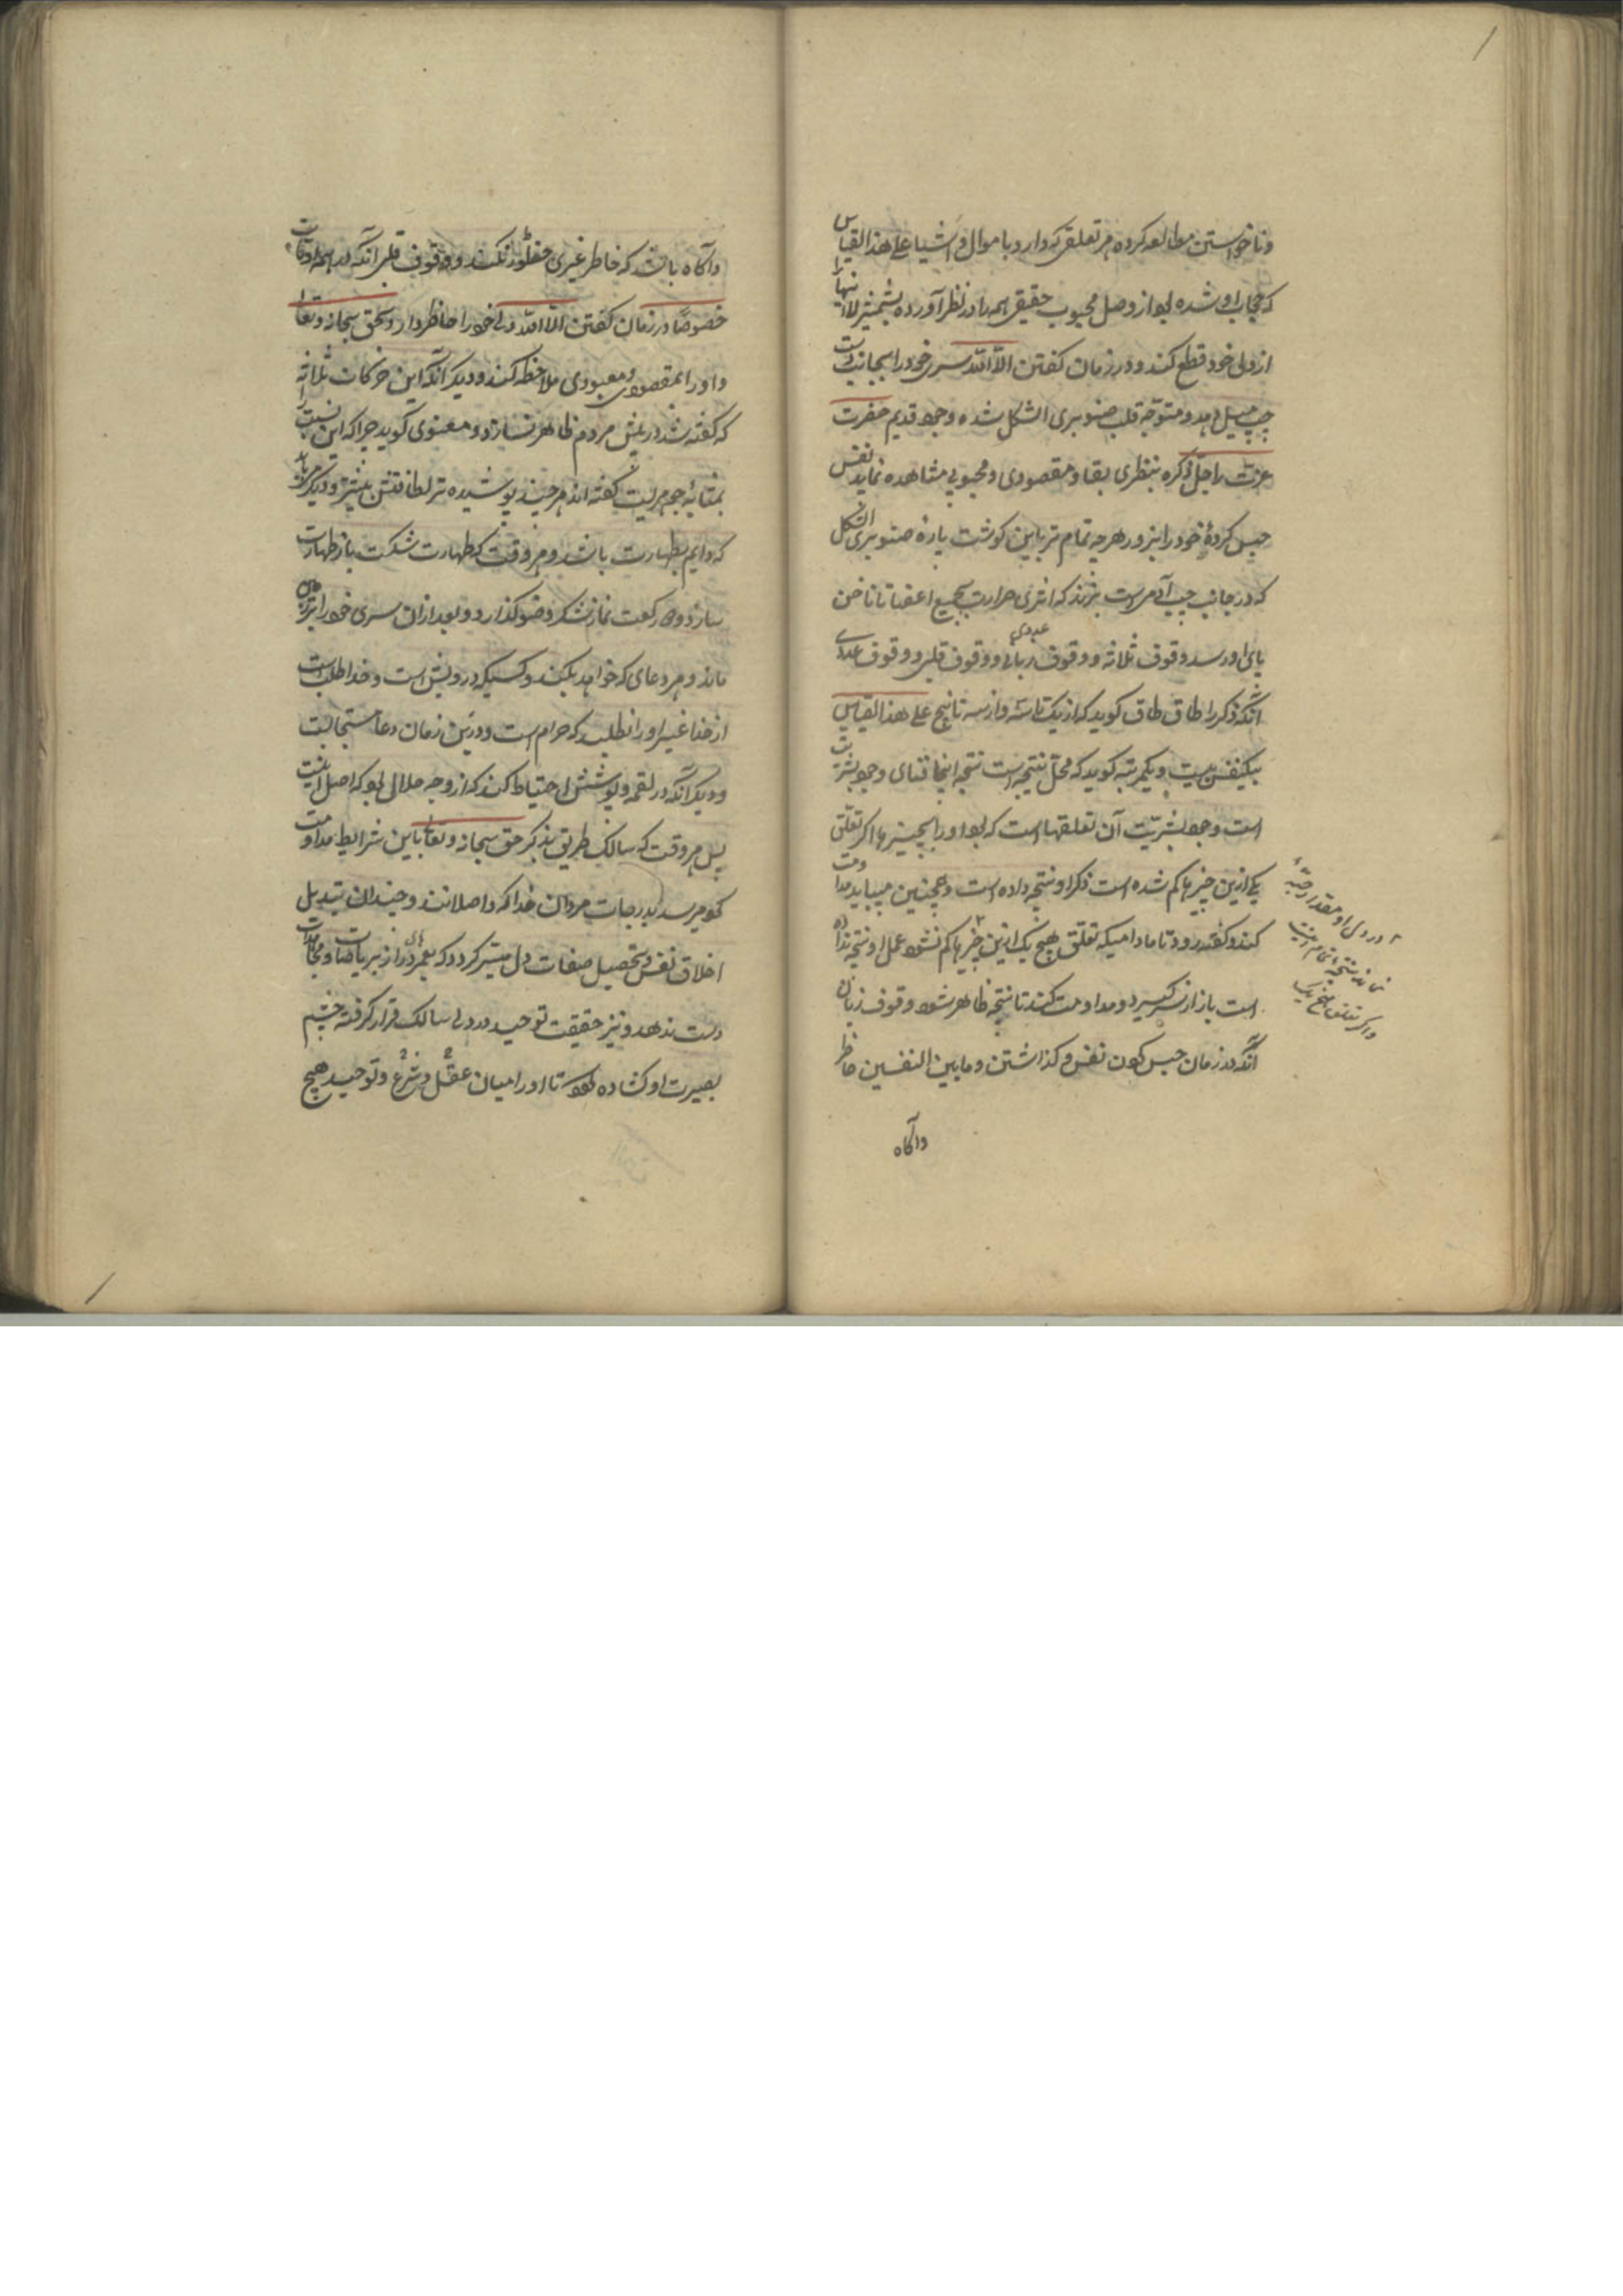 وناخواستن مطالعه کرده هر تعلقی که دارد با موال و اشیا علی هذا القیاس
که حجاب او شده بود از وصل محبوب حقیقی همه را در نظر آورده بشمشیر لا اینها را
از دل خود قطع کند و در زمان کفتن الا الله سری خود را بجانب دست
چپ میل دهد و متوجه قلب صنوبری الشکل شده وجود قدیم حضرت
عزت را جل ذکره بنظری بقا و مقصودی و محبوبی مشاهده نماید نفس
حبس کردهٔ خود را بزور هرچه تمام تر باین کوشت پارهٔ صنوبری الشکل
که در جانب چپ آدمی است بزند که اثری حرارت بجمیع اعضا تا ناخن
پای او رسد وقوف ثلاثه و وقوف زبانی و وقوف قلبی و وقوف عددی
عددی
آنکه ذکر را طاق طاق کوید که از یک تا سه و از سه تا پنج علی هذا القیاس
بیکنفس بیست ویکمرتبه کوید که محل نتیجه است نتیجه اینجا فنای وجود بشریت
است وجود بشریت آن تعلقها است که بود او را بچیزها اکر تعلق
یکی ازین چیزها کم شده است ذکر او نتیجه داده است وهمچنین میباید مداومت
کند و کفته رود تا مادامیکه تعلق هیچ یک ازین چیزها کم نشود عمل او نتیجه نداده
است باز از سر کیرد و مداومت کند تا نتیجه ظاهر شود وقوف زبانی
آنکه در زمان حبس کردن نفس و کذاشتن و مابین النفسین حاضر
وآکاه
در دل او مقدار حبهٔ
نماند نتیجه تمام است
واکر تعلق هیچ یک
وآکاه باشد که خاطر غیری خطور نکند و وقوف قلبی آنکه در همه اوقات
خصوصًا در زمان کفتن الا الله دل خود را حاظر دارد بحق سبحانه وتعالی
و اورا بمقصودی و معبودی ملاحظه کند و دیکر آنکه این حرکات ثلاثه
که کفته شد در پیش مردم ظاهر نسازد و معنوی کوید چرا که این نسبت را
بمثابهٔ کفته اند هرچند پوشیده تر لطافتش بیشتر و دیکر
که دایم بطهارت باشد و هر وقت که طهارت شکست باز طهارت
سازد و دو رکعت نماز شکر وضو کذارد و بعد از آن سری خود را
ماند و هر دعای که خواهد بکند و کسیکه درویش است و خدا طلب است
از خدا غیر او را نطلبد که حرام است و درین زمان دعا مستجابست
و دیکر آنکه در لقمه و پوشش احتیاط کند که از وجه حلال بود که اصل اینست
پس هر وقت که سالک طریق بذکر حق سبحانه وتعالی باین شرایط مداومت
کوید میرسد بدرجات مردان خدا که واصلانند و چندان تبدیل
اخلاق نفس و تحصیل صفات دل میسر کردد که بعمرهای دراز بریاضات و مجاهدات
دست ندهد و نیز حقیقت توحید در دل سالک قرار کرفته چشم
بصیرت او کشاده شود تا او را میان عقل و شرع و توحید هیچ